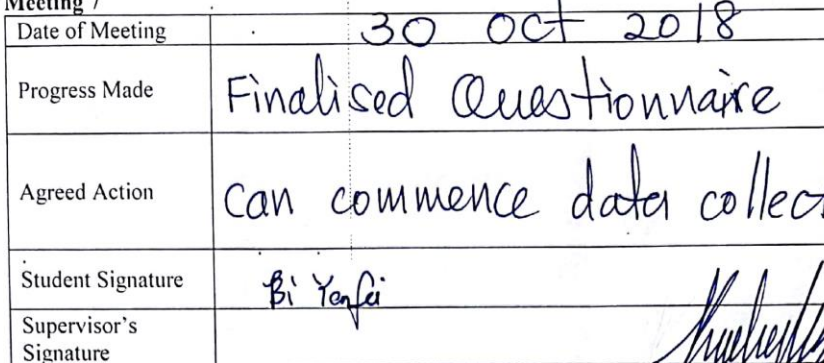 Meeting 7
Date of Meeting 30 Oct 2018
Progress Made Finalised Questionnaire
Agreed Action Can commence data collec
Student Signature Bi Yanfei
Supervisor's
Signature